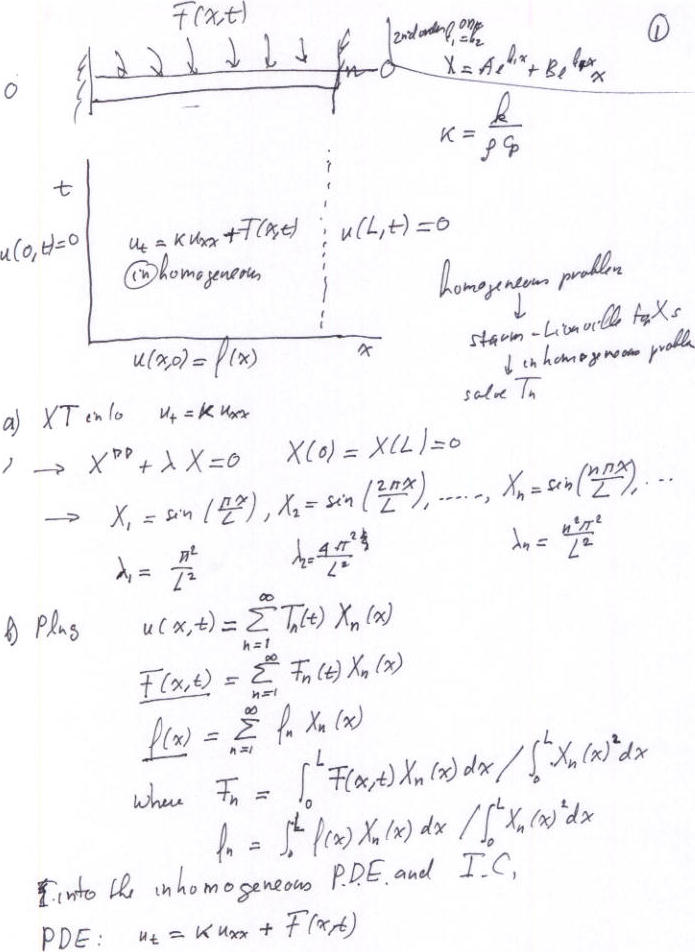 F(x,t)
①
2nd order
X = Ae + Be
x
0
κ = k / ρ Cp
t
u(0,t)=0
u_t = κ u_xx + F(x,t)
u(L,t) = 0
(in)homogeneous
homogeneous problem
↓
sturm-Liouville for Xs
↓ inhomogeneous proble
solve Tn
u(x,0) = f(x)
x
a) XT into u_t = κ u_xx
→ X'' + λ X = 0 X(0) = X(L) = 0
→ X₁ = sin(πx/L), X₂ = sin(2πx/L), ....., Xn = sin(nπx/L), ...
λ₁ = π²/L² λ₂ = 4π²/L² λn = n²π²/L²
b) Plug u(x,t) = ∑_{n=1}^∞ Tn(t) Xn(x)
F(x,t) = ∑_{n=1}^∞ Fn(t) Xn(x)
f(x) = ∑_{n=1}^∞ fn Xn(x)
where Fn = ∫₀^L F(x,t) Xn(x) dx / ∫₀^L Xn(x)² dx
fn = ∫₀^L f(x) Xn(x) dx / ∫₀^L Xn(x)² dx
into the inhomogeneous P.D.E. and I.C.
PDE: u_t = κ u_xx + F(x,t)